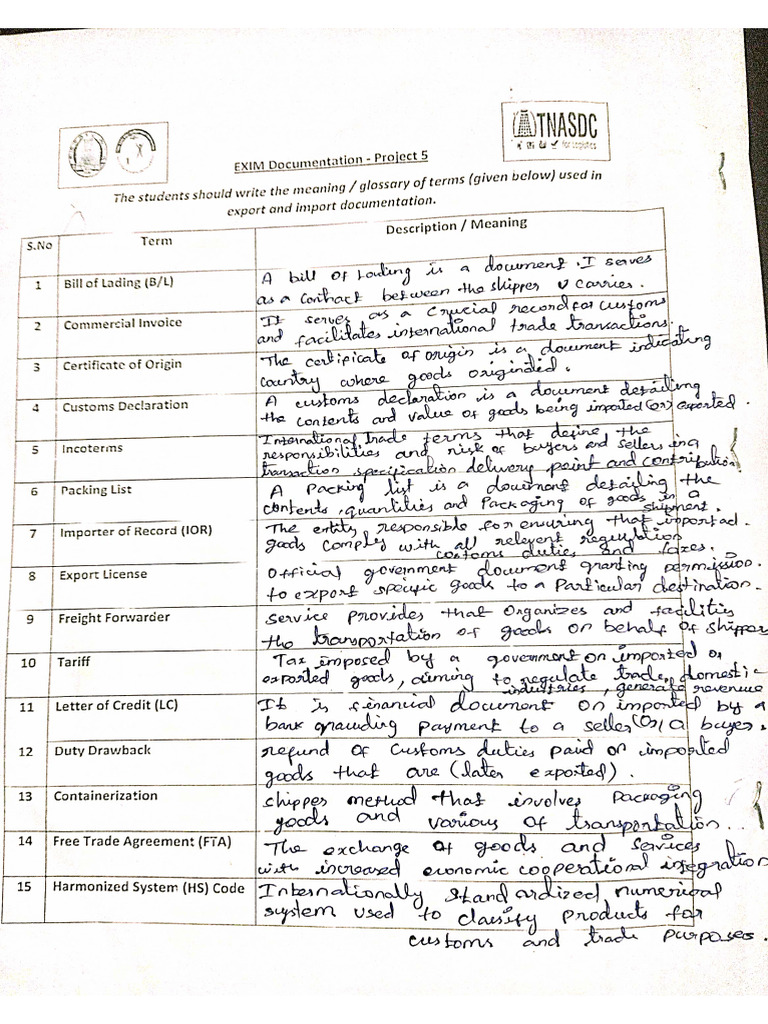 TNASDC
for Logistics
EXIM Documentation - Project 5
The students should write the meaning / glossary of terms (given below) used in
export and import documentation.
S.No Term Description / Meaning
1 Bill of Lading (B/L) A bill of Lading is a document. I serves
as a contract between the shipper & carries.
2 Commercial Invoice It serves as a crucial record for customs
and facilitates international trade transactions.
3 Certificate of Origin The certificate of origin is a document indicating
country where goods originded.
4 Customs Declaration A customs declaration is a document detailing
the contents and value of goods being imported (or) exported.
5 Incoterms International trade terms that define the
responsibilities and risk of buyers and sellers in a
transaction specification delivery point and contribution
6 Packing List A Packing list is a document detailing the
contents, quantities and Packaging of goods in a
shipment.
7 Importer of Record (IOR) The entity responsible for ensuring that importad.
goods comply with all relevent regulation
customs duties and taxes.
8 Export License Official government document granting permission.
to export specific goods to a Particular destination.
9 Freight Forwarder service provides that organizes and facilities
the transportation of goods on behalf of shippers
10 Tariff Tax imposed by a government on imported or
exported goods, aiming to regulate trade, domestic
industries, generate revenue
11 Letter of Credit (LC) It is financial document on imported by a
bank grauding payment to a seller (or) a buyer.
12 Duty Drawback refund of customs duties paid on imported
goods that are (later exported).
13 Containerization shippes method that involves packaging
goods and various of transportation...
14 Free Trade Agreement (FTA) The exchange of goods and services
with increased economic cooperational integration
15 Harmonized System (HS) Code Internationally standardized numerical
system used to classify products for
customs and trade purposes.